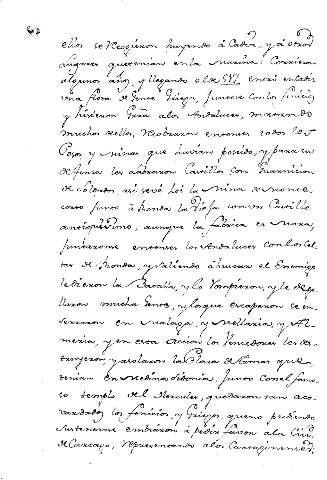 ellos se Recojieron huyendo á Cadiz, y á otros
lugares que tenian en la Marina: Corrieron
algunos años, y llegando el de 517 entró en Cadiz
una flota de Gente Griega, juntose con los fenicios,
y hicieron Guerra a los Andaluces, matando
muchos de ellos, Recobraron entonces todos los
Pozos, y minas que havian poseido, y para su
defensa les labraron Castillos con Guarnicion
de Soldados asi se vé hoi la Mina de
corto junto á Ronda la Vieja con un Castillo
antiquissimo, aunque la fabrica es Mora,
Juntaronse entonces los Andaluces con los Cel
tas de Ronda, y saliendo á buscar el Enemigo
le dieron la Batalla, y lo Rompieron, y le
mucha Gente, y los que escaparon se en
serraron en Malaga, y Mellaria, y Al
meria, y en esta accion los Vencedores les des
truyeron, y asolaron la Plaza de Armas que
tenian en Medina Sidonia, junto con el famo
so templo de Hercules, quedaron tan aco
vardados los fenicios, y Griegos, que no pudiendo
sustenerse embiaron á pedir favor a la Ciud.
de Cartago, Representando a los Cartaginenses